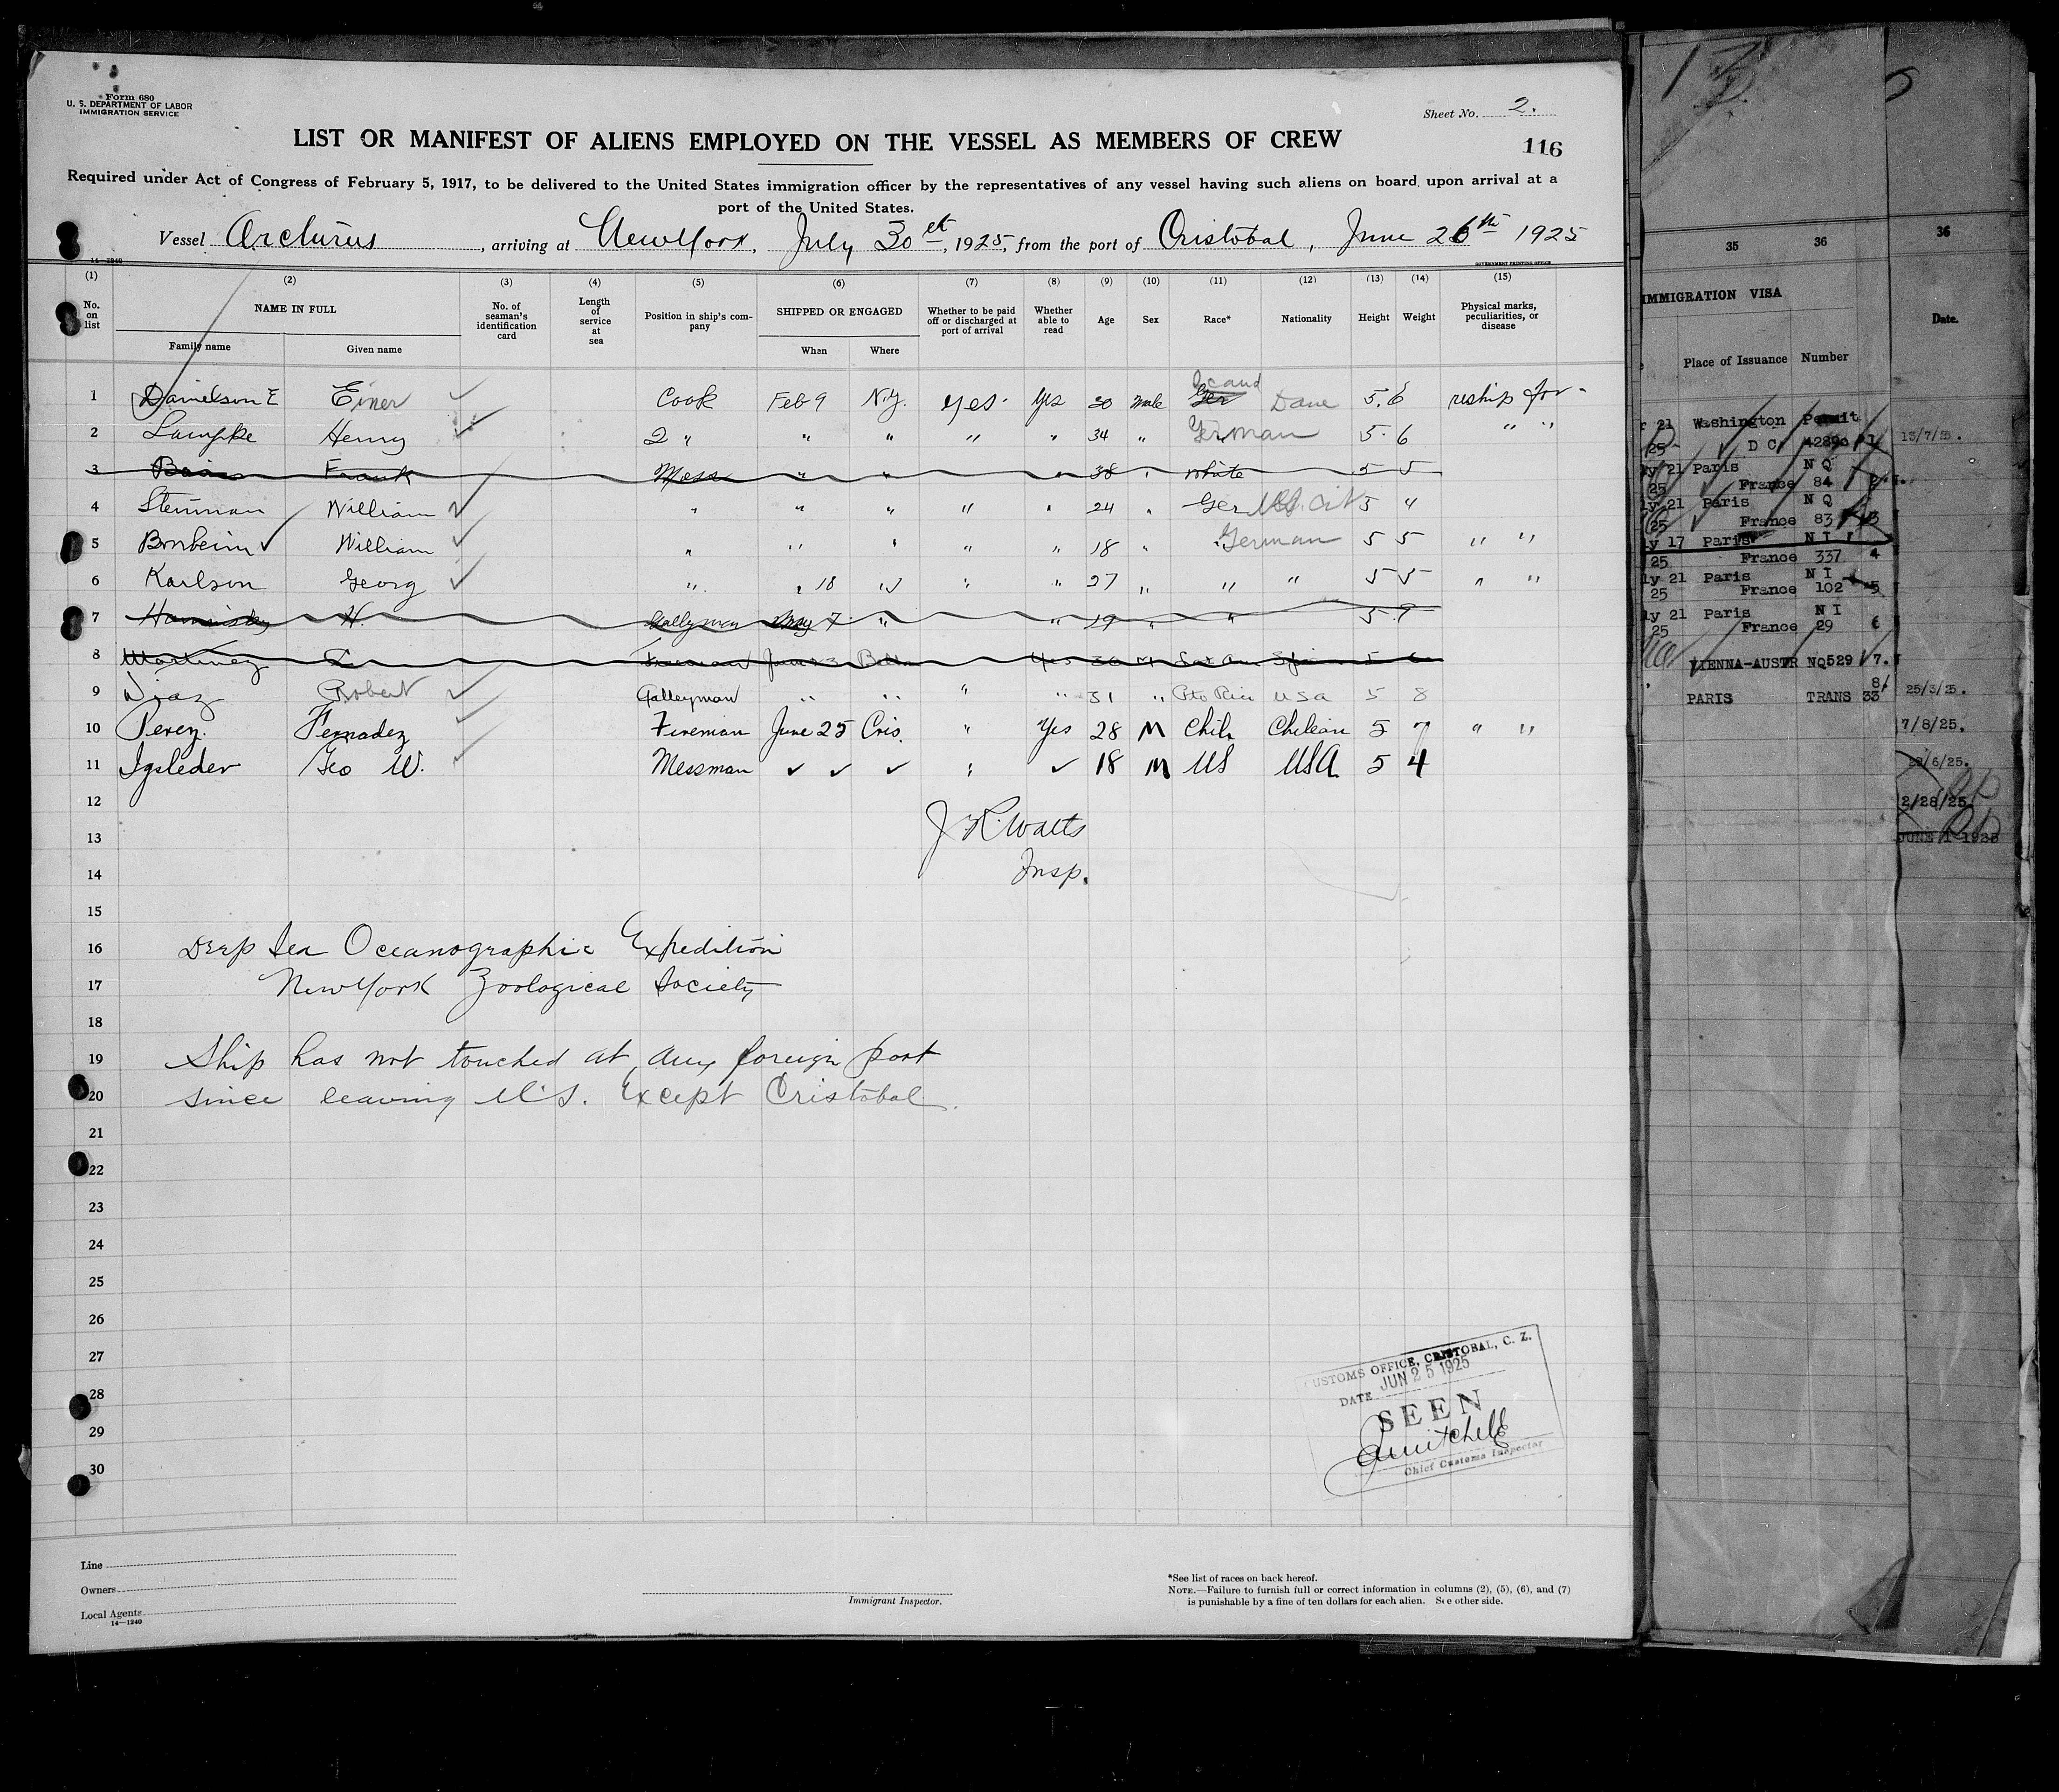 Form 680
U. S. DEPARTMENT OF LABOR
IMMIGRATION SERVICE
Sheet No. 2.
LIST OR MANIFEST OF ALIENS EMPLOYED ON THE VESSEL AS MEMBERS OF CREW
116
Required under Act of Congress of February 5, 1917, to be delivered to the United States immigration officer by the representatives of any vessel having such aliens on board upon arrival at a
port of the United States.
Vessel Arcturus, arriving at New York, July 30, 1925, from the port of Cristobal, June 26th 1925
14—1240 GOVERNMENT PRINTING OFFICE
(1) (2) (3) (4) (5) (6) (7) (8) (9) (10) (11) (12) (13) (14) (15)
No. on list NAME IN FULL Family name Given name No. of seaman's identification card Length of service at sea Position in ship's company SHIPPED OR ENGAGED When Where Whether to be paid off or discharged at port of arrival Whether able to read Age Sex Race* Nationality Height Weight Physical marks, peculiarities, or disease
1 Danielson E Einer ✓ Cook Feb 9 N.Y. Yes Yes 30 Male Ger Scand Dane 5.6 reship for
2 Lampke Henry ✓ 2 " " " " " 34 " German 5.6 " "
3 Frank Mess " " " 38 " White 5 5
4 Steinman William ✓ " " " " " 24 " Ger U.S. Cit 5 "
5 Bornheim ✓ William ✓ " " " " " 18 " German 5 5 " "
6 Karlson Georg ✓ " " 18 " " " 27 " " " 5 5 " "
7 H. Galleyman May 7 " " 19 " " 5.9
8 Martinez Fireman June Yes M
9 Diaz Robert ✓ Galleyman " " " " 31 " Pto Rico USA 5 8
10 Perez. Fernadez ✓ Fireman June 25 Cris. " Yes 28 M Chile Chilean 5 7 " "
11 Igsleder Geo W. ✓ Messman ✓ ✓ ✓ " ✓ 18 M US USA 5 4
12
13 J R. Watts
14 Insp.
15
16 Deep Sea Oceanographic Expedition
17 New York Zoological Society
18
19 Ship has not touched at any foreign port
20 since leaving U.S. Except Cristobal.
21
22
23
24
25
26
27
28
29
30
CUSTOMS OFFICE, CRISTOBAL, C. Z.
DATE JUN 25 1925
SEEN
Mitchell
Chief Customs Inspector
Line
Owners
Local Agents
14—1240
Immigrant Inspector.
*See list of races on back hereof.
NOTE.—Failure to furnish full or correct information in columns (2), (5), (6), and (7)
is punishable by a fine of ten dollars for each alien. See other side.
35 36 36
IMMIGRATION VISA
Place of Issuance Number Date.
21 Washington Permit
25 D C 13/7/25.
ly 21 Paris N Q
25 France 84
ly 21 Paris N Q
25 France 83
ly 17 Paris N I
25 France 337 4
ly 21 Paris N I
25 France 102 5
ly 21 Paris N I
25 France 29 6
VIENNA-AUSTR NQ529 7.
PARIS TRANS 33 8/ 25/3/25.
7/8/25.
/6/25.
2/28/25
JUNE 1 1925